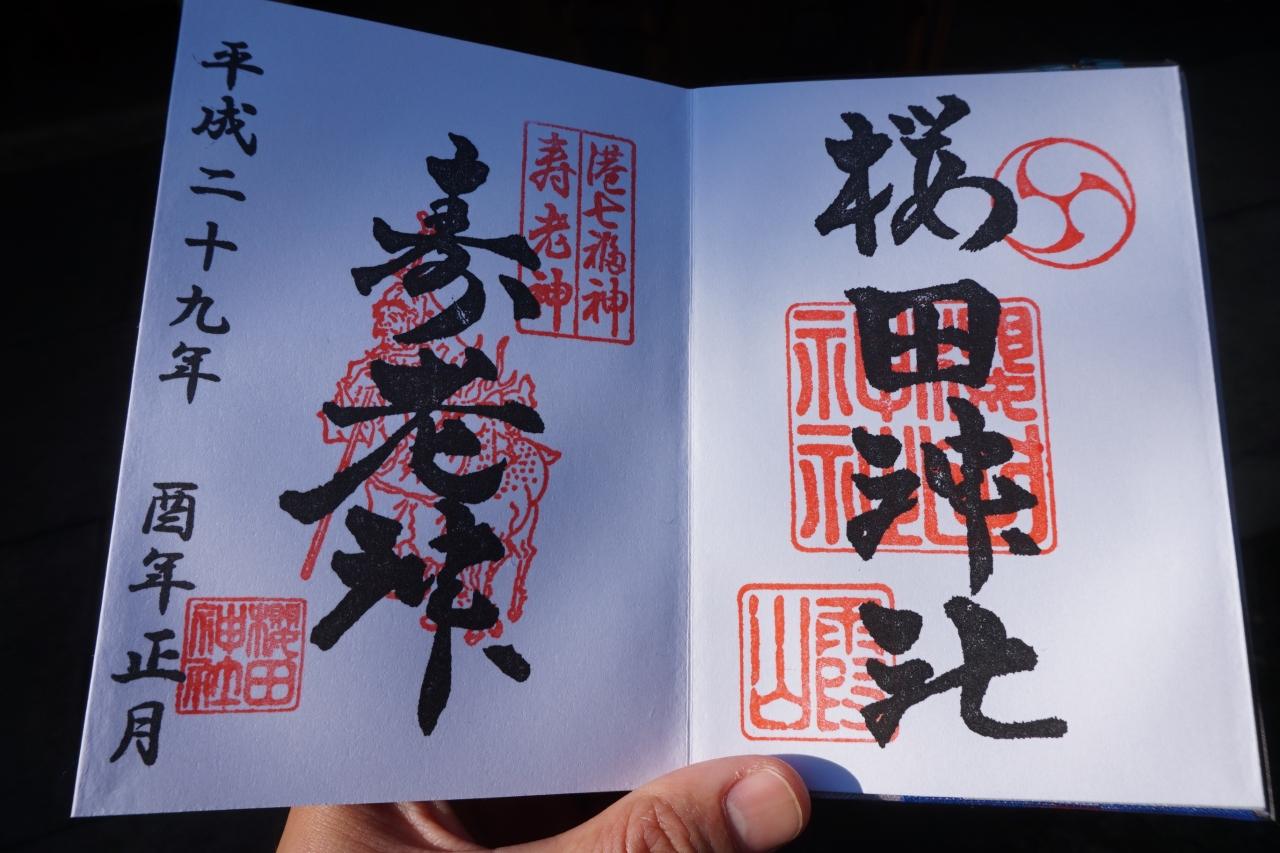 桜田神社
櫻田
神社
霞
山
港七福神
寿老神
寿老神
櫻田
神社
平成二十九年 酉年正月